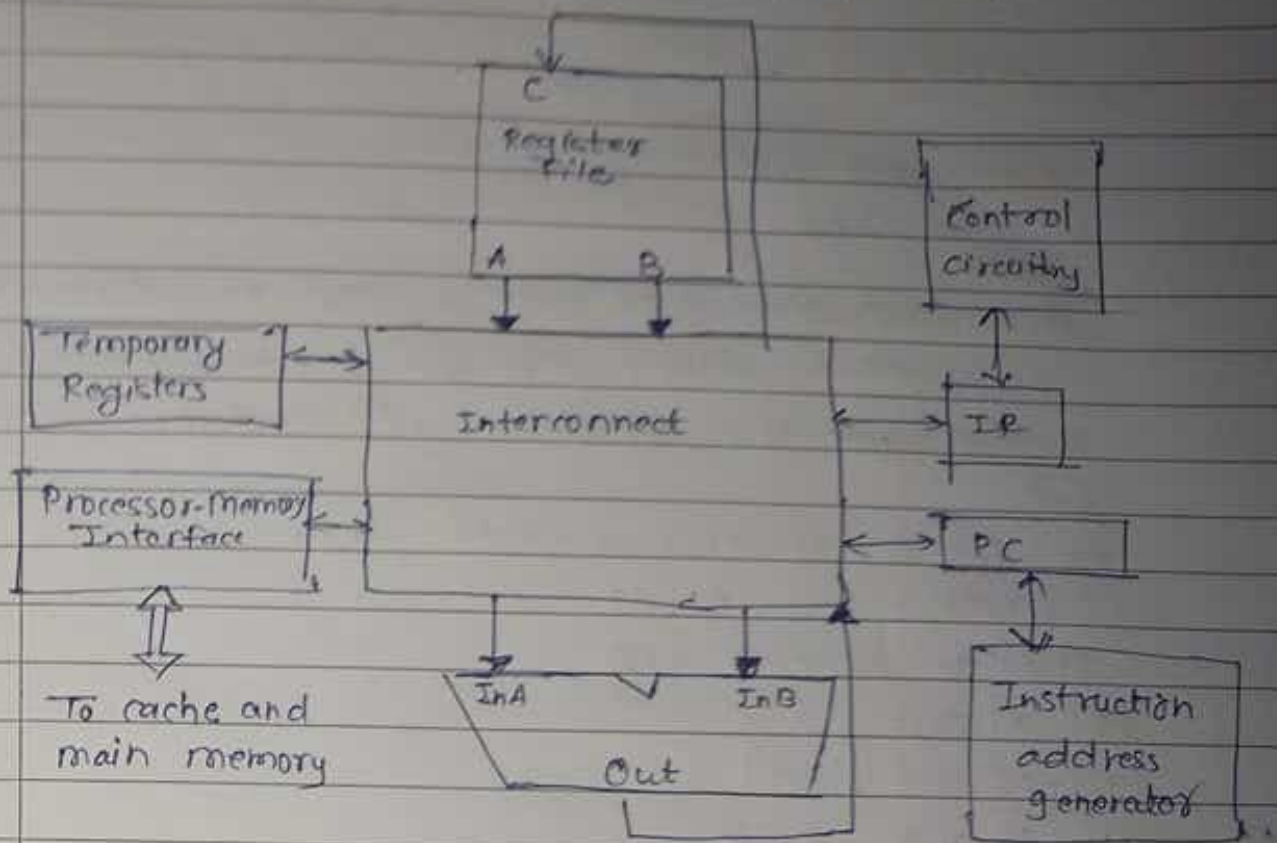 C
Register
File
A B
Control
circuitry
Temporary
Registers
Interconnect
IR
Processor-Memory
Interface
PC
To cache and
main memory
InA InB
Out
Instruction
address
generator